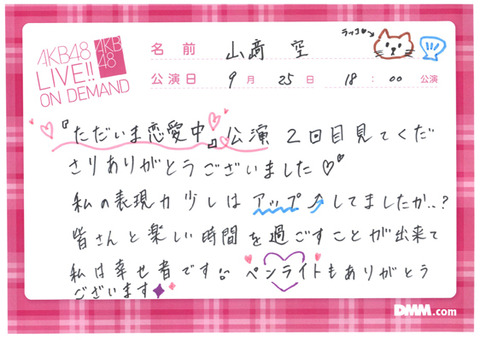 AKB48
LIVE!!
ON DEMAND
AKB
48
名前 山﨑 空
ラッコ
公演日 9月 25日 18:00 公演
『ただいま恋愛中』公演 2回目見てくだ
さりありがとうございました♡♡
私の表現力少しはアップ⤴してましたか..?
皆さんと楽しい時間を過ごすことが出来て
私は幸せ者です。 ペンライトもありがとう
ございます
DMM.com